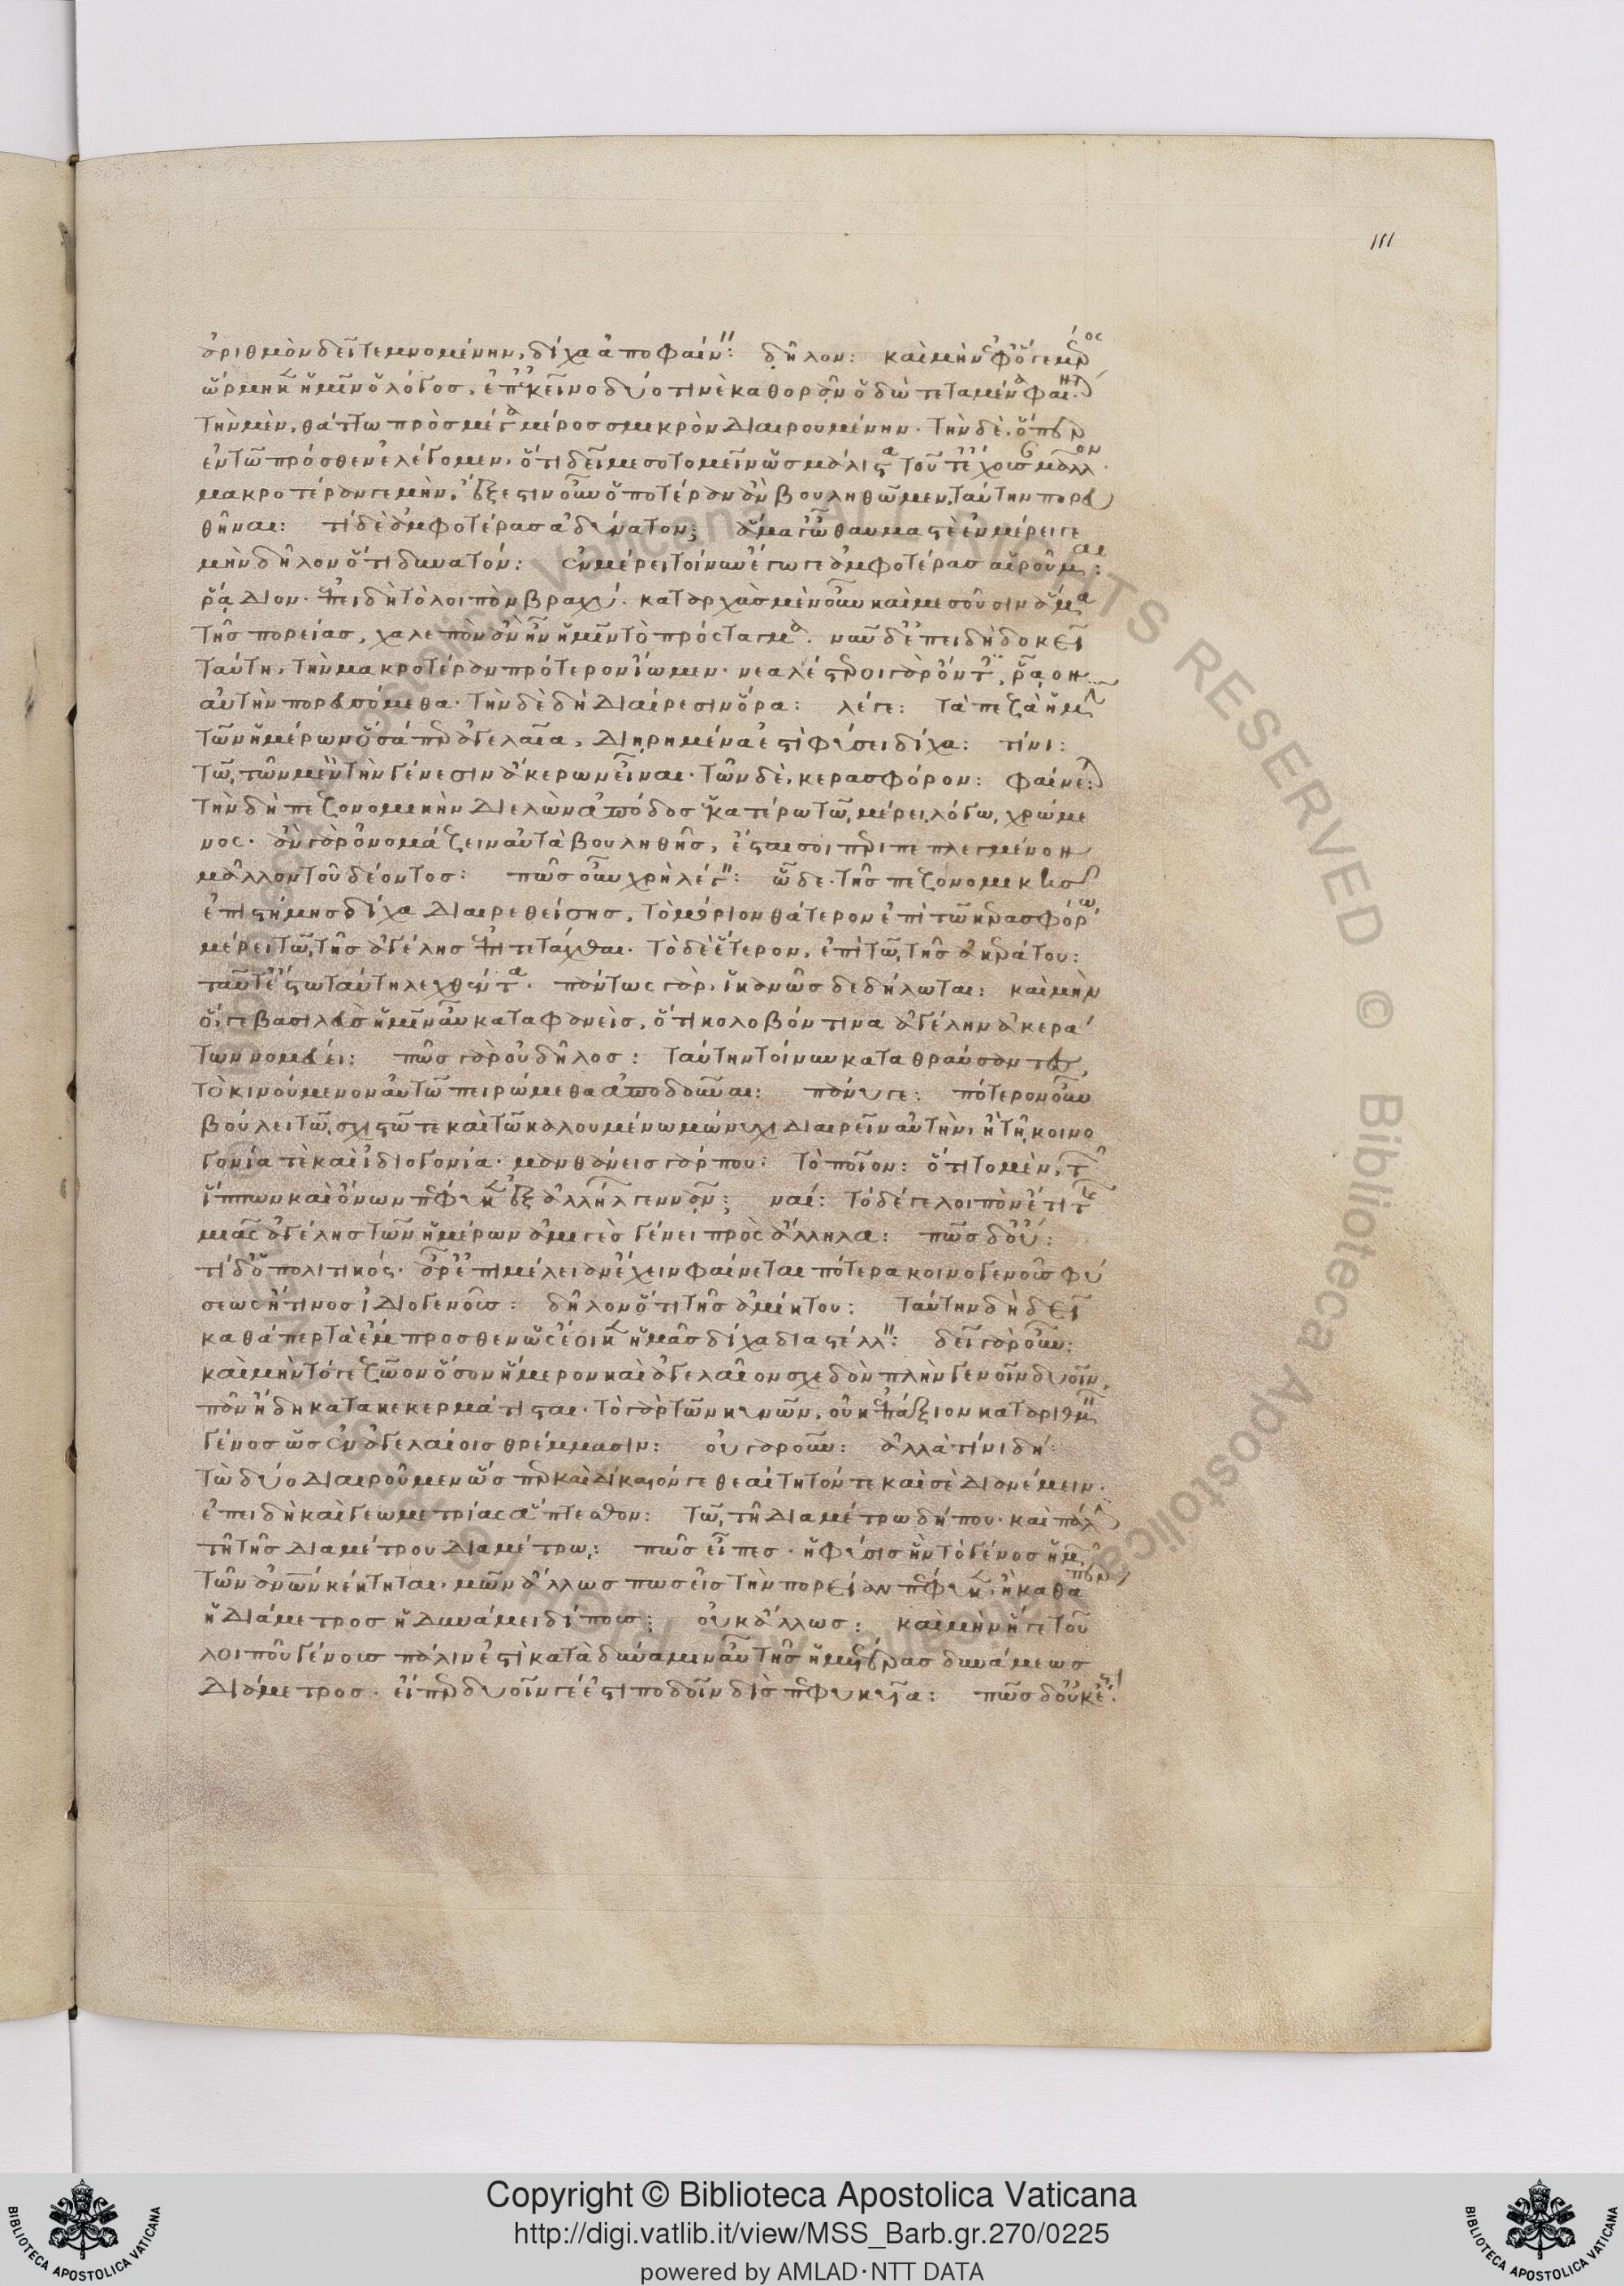 ἀριθμὸν δεῖ τεμνομένην, δίχα ἀποφαίνειν: δῆλον: καὶ μὴν ἐφ' ὅ γε μέρος
ὥρμηκεν ἡμῖν ὁ λόγος, ἐπ' ἐκεῖνο δύο τινὲ καθορᾶν ὁδὼ τεταμένα φαίνεται.
τὴν μὲν, θάττω πρὸς μέγα μέρος σμικρὸν διαιρουμένην. τὴν δὲ, ὅπερ
ἐν τῷ πρόσθεν ἐλέγομεν, ὅτι δεῖ μεσοτομεῖν ὡς μάλιστα τοῦτ' ἔχουσα μᾶλλον.
μακροτέραν γε μὴν, ἔξεστιν οὖν ὁποτέραν ἂν βουληθῶμεν, ταύτην πορευ
θῆναι: τί δὲ ἀμφοτέρας ἀδύνατον; ἅμα γ' ὦ θαυμαστὲ ἐν μέρει γε
μὴν δῆλον ὅτι δυνατόν: ἐν μέρει τοίνυν ἔγωγε ἀμφοτέρας αἱροῦμαι:
ῥᾴδιον. ἐπειδὴ τὸ λοιπὸν βραχύ. κατ' ἀρχὰς μὲν οὖν καὶ μεσοῦσιν ἅμα
τῆς πορείας, χαλεπὸν ἂν ἦν ἡμῖν τὸ πρόσταγμα. νῦν δ' ἐπειδὴ δοκεῖ
ταύτη, τὴν μακροτέραν πρότερον ἴωμεν. νεαλέστεροι γὰρ ὄντες, ῥᾷον
αὐτὴν πορευσόμεθα. τὴν δὲ δὴ διαίρεσιν ὅρα: λέγε: τὰ πεζὰ ἡμῖν
τῶν ἡμέρων ὅσά περ ἀγελαῖα, διῃρημένα ἐστὶ φύσει δίχα: τίνι:
τῷ, τῶν μὲν τὴν γένεσιν ἄκερων εἶναι. τῶν δὲ, κερασφόρον: φαίνεται:
τὴν δὴ πεζονομικὴν διελὼν ἀπόδος ἑκατέρω τῷ μέρει, λόγῳ, χρώμε
νος. ἂν γὰρ ὀνομάζειν αὐτὰ βουληθῇς, ἔσται σοι περιπεπλεγμένον
μᾶλλον τοῦ δέοντος: πῶς οὖν χρὴ λέγειν: ὧδε. τῆς πεζονομικῆς
ἐπιστήμης δίχα διαιρεθείσης, τὸ μόριον θάτερον ἐπὶ τῷ κερασφόρῳ
μέρει τῷ, τῆς ἀγέλης ἐπιτετάχθαι. τὸ δὲ ἕτερον, ἐπὶ τῷ, τῆς ἀκεράτου:
ταῦτ' ἔστω ταύτη λεχθέντα. πάντως γὰρ, ἱκανῶς δεδήλωται: καὶ μὴν
ὅ, γε βασιλεὺς ἡμῖν αὖ καταφανεὶς, ὅτι κολοβόν τινα ἀγέλην ἀκερά
των νομεύει: πῶς γὰρ οὐ δῆλος: ταύτην τοίνυν καταθραύσαντες,
τὸ κινούμενον αὐτῷ πειρώμεθα ἀποδοῦναι: πάνυ γε: πότερον οὖν
βούλει τῷ, σχιστῷ τε καὶ τῷ καλουμένω μώνυχι διαιρεῖν αὐτὴν, ἢ τῇ, κοινο
γονία τὲ καὶ ἰδιογονία. μανθάνεις γάρ που: τὸ ποῖον: ὅτι τὸ μὲν, τῶν
ἵππων καὶ ὄνων πέφυκεν ἐξ ἀλλήλων γεννᾶν; ναί: τὸ δέ γε λοιπὸν ἔτι τῆς
μιᾶς ἀγέλης τῶν ἡμέρων ἀμιγὲς γένει πρὸς ἄλληλα: πῶς δ' οὔ:
τί δ' ὁ πολιτικός. ἆρ' ἐπιμέλειαν ἔχειν φαίνεται πότερα κοινογενοῦς φύ
σεως ἤ τινος ἰδιογενοῦς: δῆλον ὅτι τῆς ἀμίκτου: ταύτην δὴ δεῖ
καθάπερ τὰ ἔμπροσθεν ὡς ἔοικεν ἡμᾶς δίχα διαστέλλειν: δεῖ γὰρ οὖν:
καὶ μὴν τό γε ζῷον ὅσον ἥμερον καὶ ἀγελαῖον σχεδὸν πλὴν γενοῖν δυοῖν,
πᾶν ἤδη κατακεκερμάτισται. τὸ γὰρ τῶν κυνῶν, οὐκ ἐπάξιον καταριθμεῖν
γένος ὡς ἐν ἀγελαίοις θρέμμασιν: οὐ γὰρ οὖν: ἀλλὰ τίνι δὴ:
τὼ δύο διαιροῦμεν ὧι περ καὶ δίκαιόν γε θεαίτητόν τε καὶ σὲ διανέμειν.
ἐπειδὴ καὶ γεωμετρίας ἅπτεσθον: τῷ, τῇ διαμέτρω δήπου. καὶ πάλιν
τῇ τῆς διαμέτρου διαμέτρω,: πῶς εἶπες. ἡ φύσις ἣν τὸ γένος ἡμῶν
τῶν ἀνθρώπων κέκτηται. μῶν ἄλλως πως εἰς τὴν πορείαν πέφυκεν, ἢ καθάπερ
ἡ διάμετρος ἡ δυνάμει δίπους; οὐκ ἄλλως: καὶ μὴν ἥ γε τοῦ
λοιποῦ γένους πάλιν ἐστὶ κατὰ δύναμιν αὖ τῆς ἡμετέρας δυνάμεως
διάμετρος. εἴπερ δυοῖν γέ ἐστι ποδοῖν δὶς πεφυκυῖα: πῶς δ' οὐκ ἔστι.
111
Copyright © Biblioteca Apostolica Vaticana
http://digi.vatlib.it/view/MSS_Barb.gr.270/0225
powered by AMLAD·NTT DATA
BIBLIOTECA APOSTOLICA VATICANA
BIBLIOTECA APOSTOLICA VATICANA